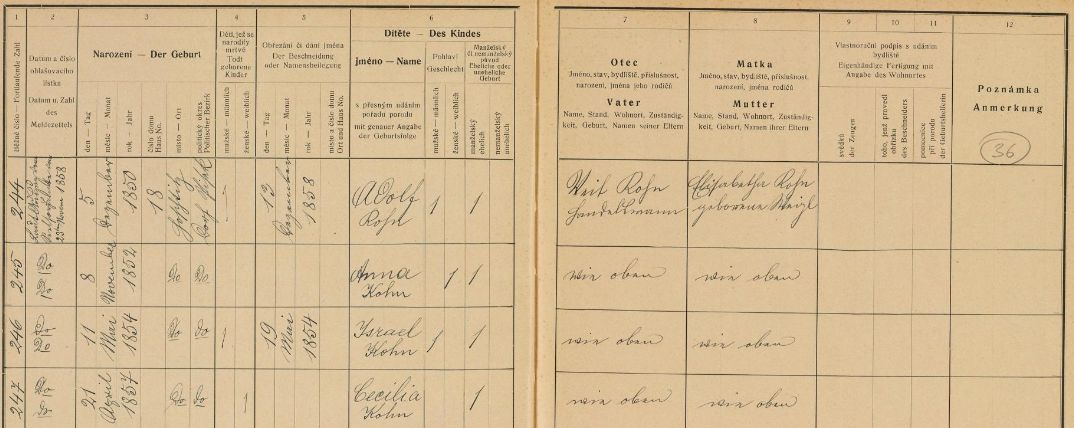 1
2
3
4
5
6
7
8
9
10
11
12
běžné číslo - Fortlaufende Zahl
Datum a číslo
ohlašovacího
lístku
Datum u. Zahl
des
Meldezettels
Narození — Der Geburt
den — Tag
měsíc — Monat
rok — Jahr
číslo domu
Haus No.
místo — Ort
politický okres
Politischer Bezirk
Děti, jež se
narodily
mrtvé
Todt
geborene
Kinder
mužské — männlich
ženské — weiblich
Obřezání či dání jména
Der Beschneidung
oder Namensbeilegung
den — Tag
měsíc — Monat
rok — Jahr
místo a číslo domu
Ort und Haus No.
Dítěte — Des Kindes
jméno — Name
s přesným udáním
pořadu porodu
mit genauer Angabe
der Geburtsfolge
Pohlaví
Geschlecht
mužské — männlich
ženské — weiblich
Manželský
či nemanželský
původ
Eheliche oder
uneheliche
Geburt
manželský
ehelich
nemanželský
unehelich
Otec
Jméno, stav, bydliště, příslušnost,
narození, jména jeho rodičů
Vater
Name, Stand, Wohnort, Zuständig-
keit, Geburt, Namen seiner Eltern
Matka
Jméno, stav, bydliště, příslušnost,
narození, jména jejích rodičů
Mutter
Name, Stand, Wohnort, Zuständig-
keit, Geburt, Namen ihrer Eltern
Vlastnoruční podpis s udáním
bydliště
Eigenhändige Fertigung mit
Angabe des Wohnortes
svědků
der Zeugen
toho, jenž provedl
obřízku
des Beschneiders
pomocnice
při porodu
der Geburtshelferin
Poznámka
Anmerkung
36
244
23ten 1858
5
Dezember
1850
18
1
13
Dezember
1858
Adolf
Kohn
1
1
Veit Kohn
Handelsmann
Elisabetha Kohn
geborene Weigl
245
Do Do
8
November
1852
Do
Do
Anna
Kohn
1
1
wie oben
wie oben
246
Do
Do
11
Mai
1854
Do
Do
1
19
Mai
1854
Israel
Kohn
1
1
wie oben
wie oben
247
Do
Do
21
April
1857
Do
Do
1
Cecilia
Kohn
1
wie oben
wie oben